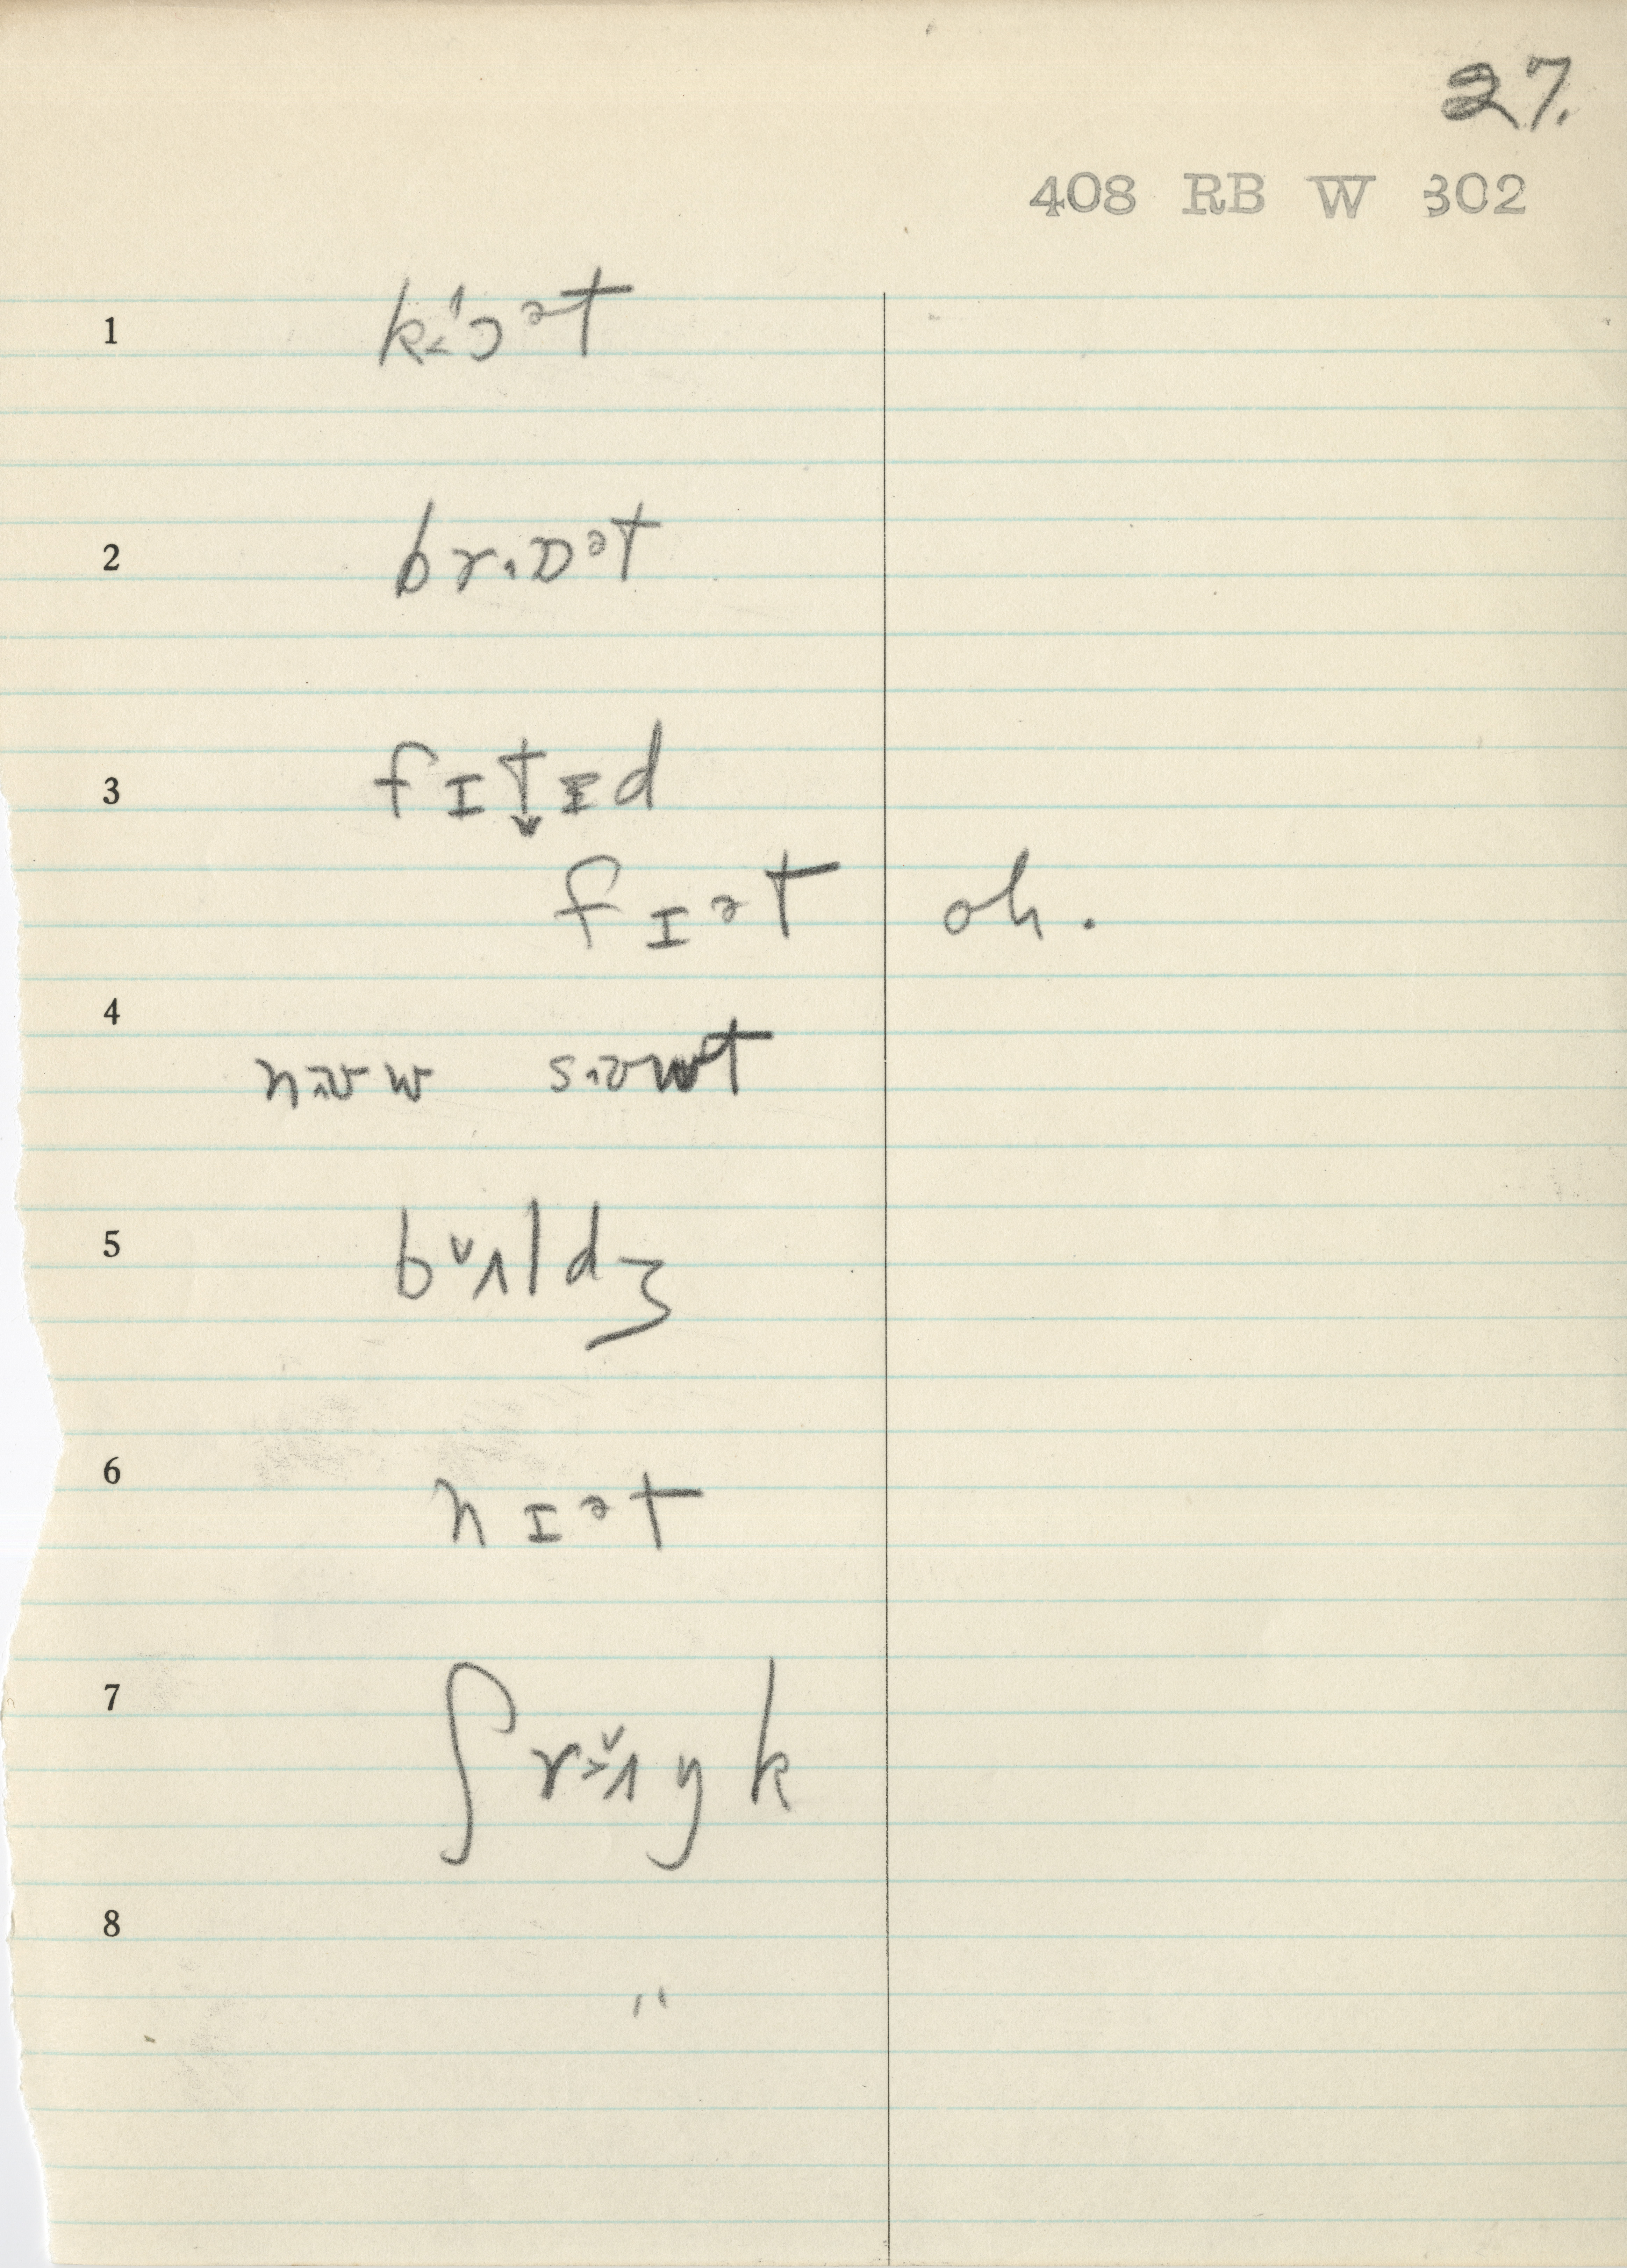 27.
408 RB W 302
1 k˂'ɔᵊt
2 br.ɒᵊt
3 fɪt↓ɪd
fɪᵊt oh.
4
nɜʊw s.ɜʊwt
5 bᵛʌldʒ
6 nɪᵊt
7 ʃr˃ᵛʌŋk
8
"